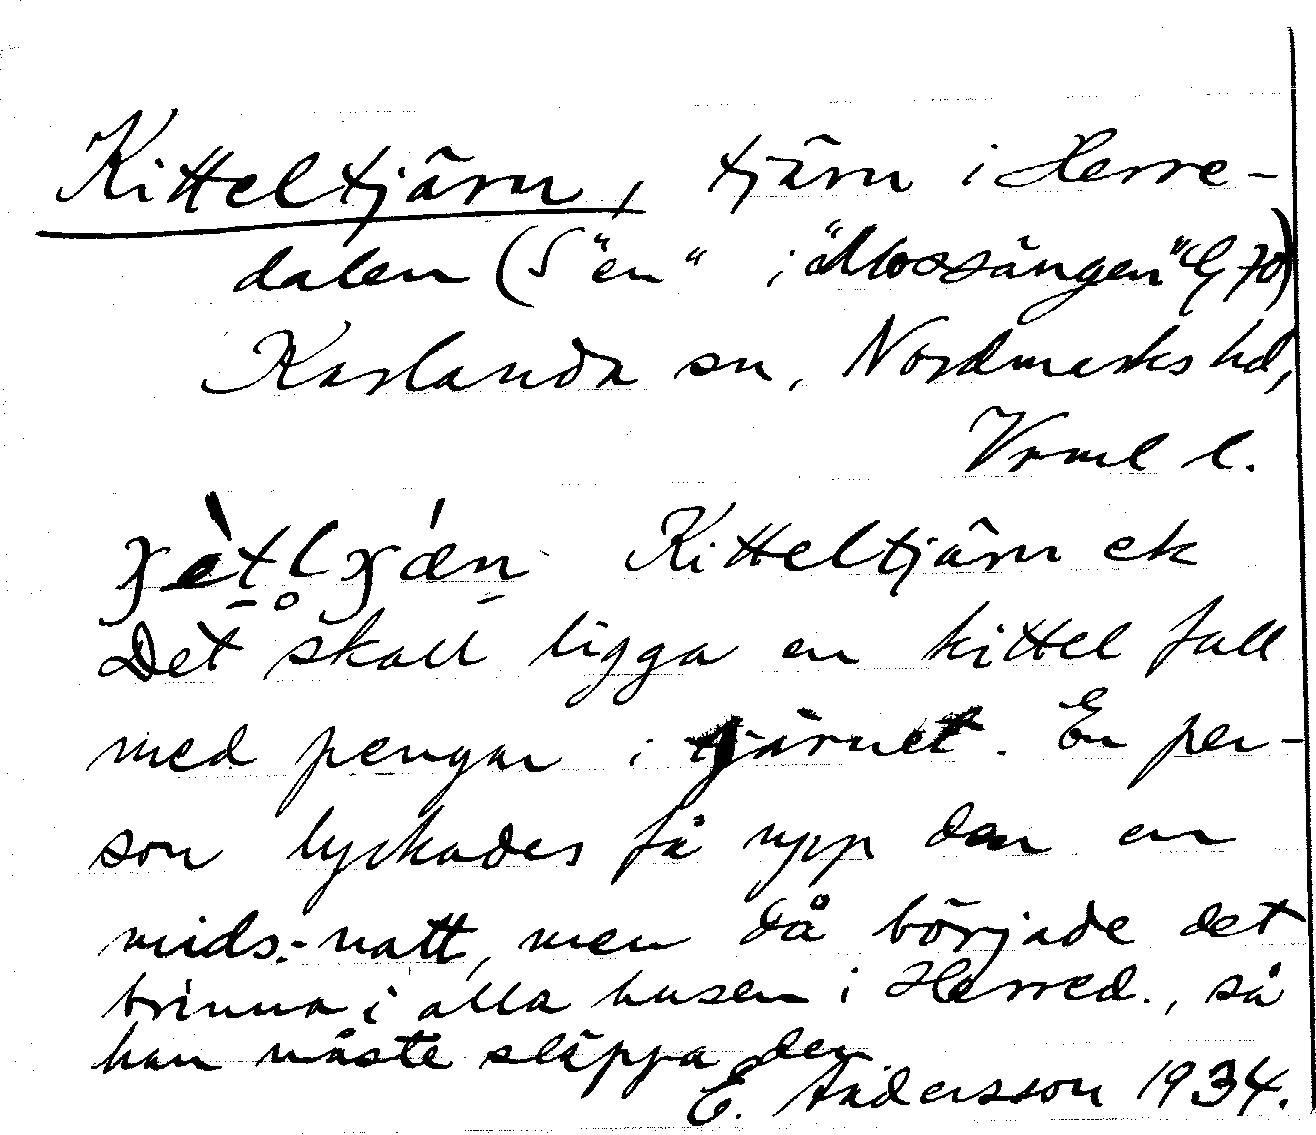 Kitteltjärn, tjärn i Herre-
dalen (S "en" i "Mossängen" G 70)
Karlanda sn, Nordmarks hd,
Vrml l.
Kitteltjärn ek
Det skall ligga en kittel full
med pengar i tjärnet. En per-
son lyckades få upp den en
mids.-natt, men då började det
brinna i alla husen i Herred., så
han måste släppa den.
E. Andersson 1934.